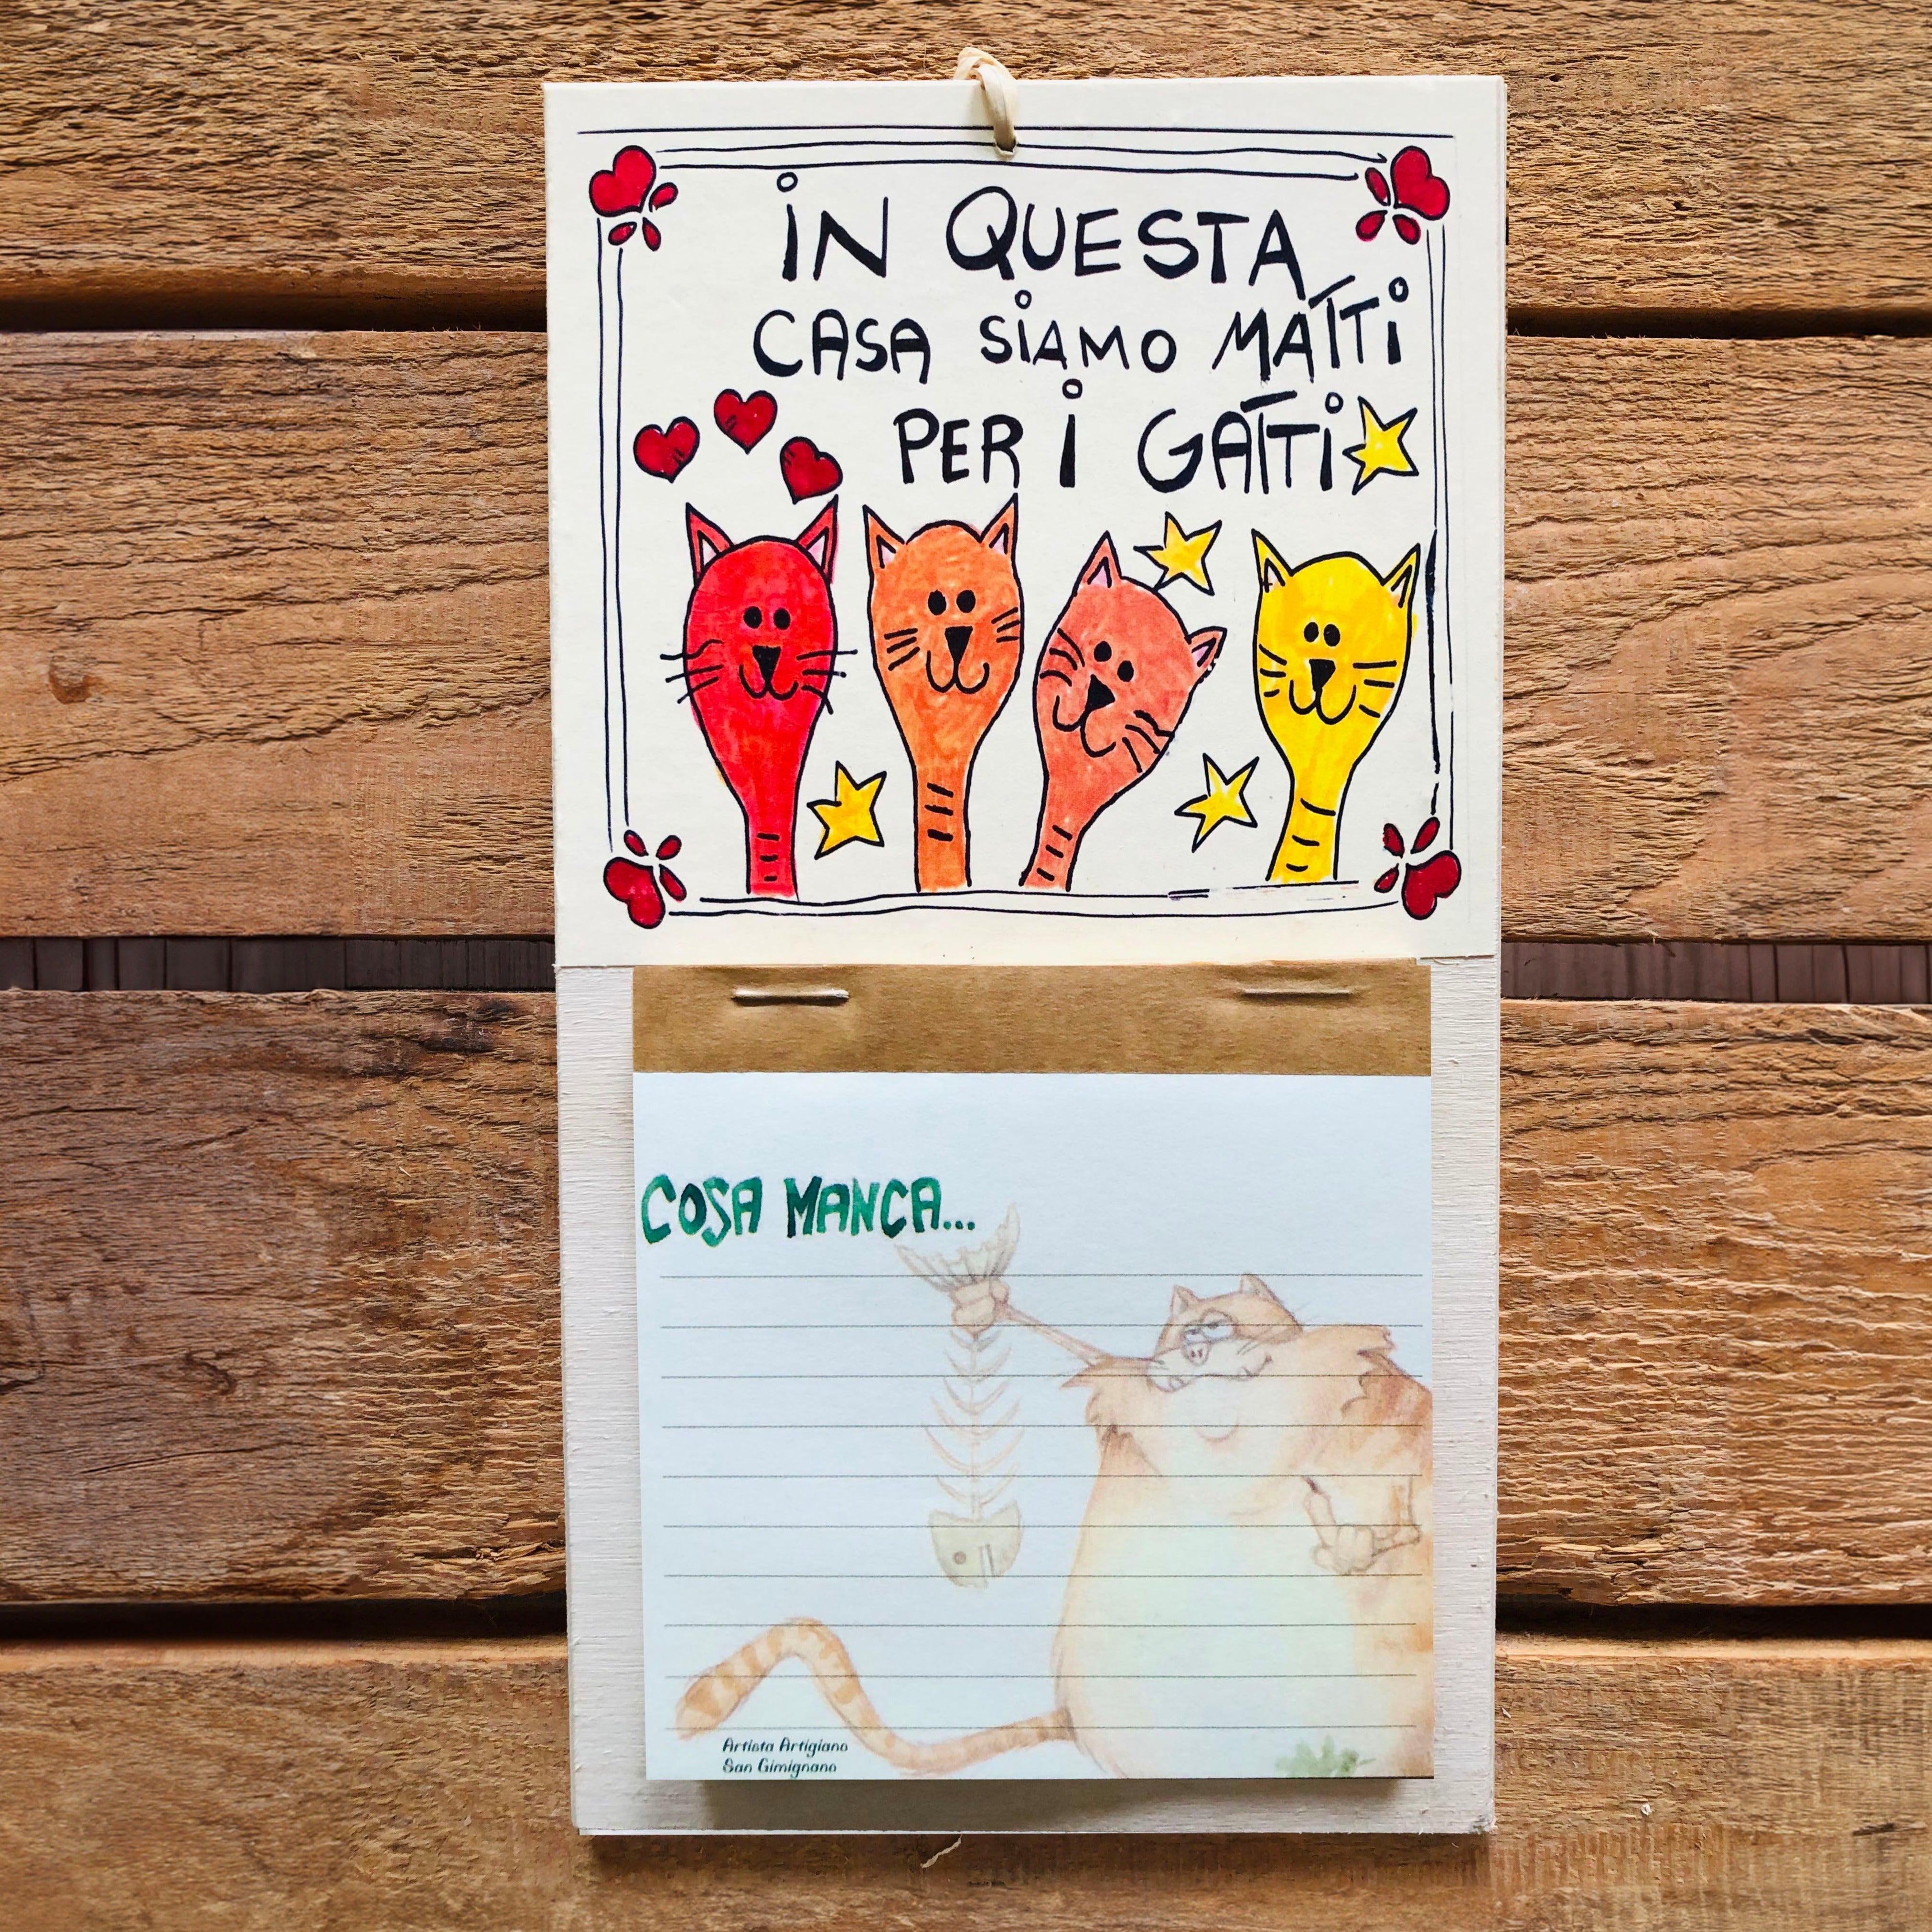 iN QUESTA
CASA SiAMO MATTi
PER i GATTi
COSA MANCA...
Artista Artigiano
San Gimignano